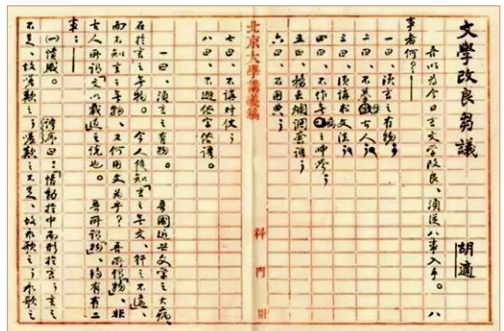 文學改良芻議
胡適
吾以為今日言文學改良,須從八事入手。八
事者何?—
一曰,須言之有物;
二曰,不摹仿古人;
三曰,須講求文法;
四曰,不作無病之呻吟;
五曰,務去爛調套語;
六曰,不用典;
北京大學講義稿 科 門 用
七曰,不講對仗;
八曰,不避俗字俗語。
一曰,須言之有物。 吾國近世文學之大病,
在於言之無物。 今人徒知「言之無文,行之不遠」,
而不知言之無物,又何用文為乎? 吾所謂「物」,非
古人所謂「文以載道」之說也。 吾所謂「物」,約有二
事:—
(一)情感。 詩序曰:「情動於中而形於言。言之
不足,故嗟歎之。嗟歎之不足,故永歌之。永歌之